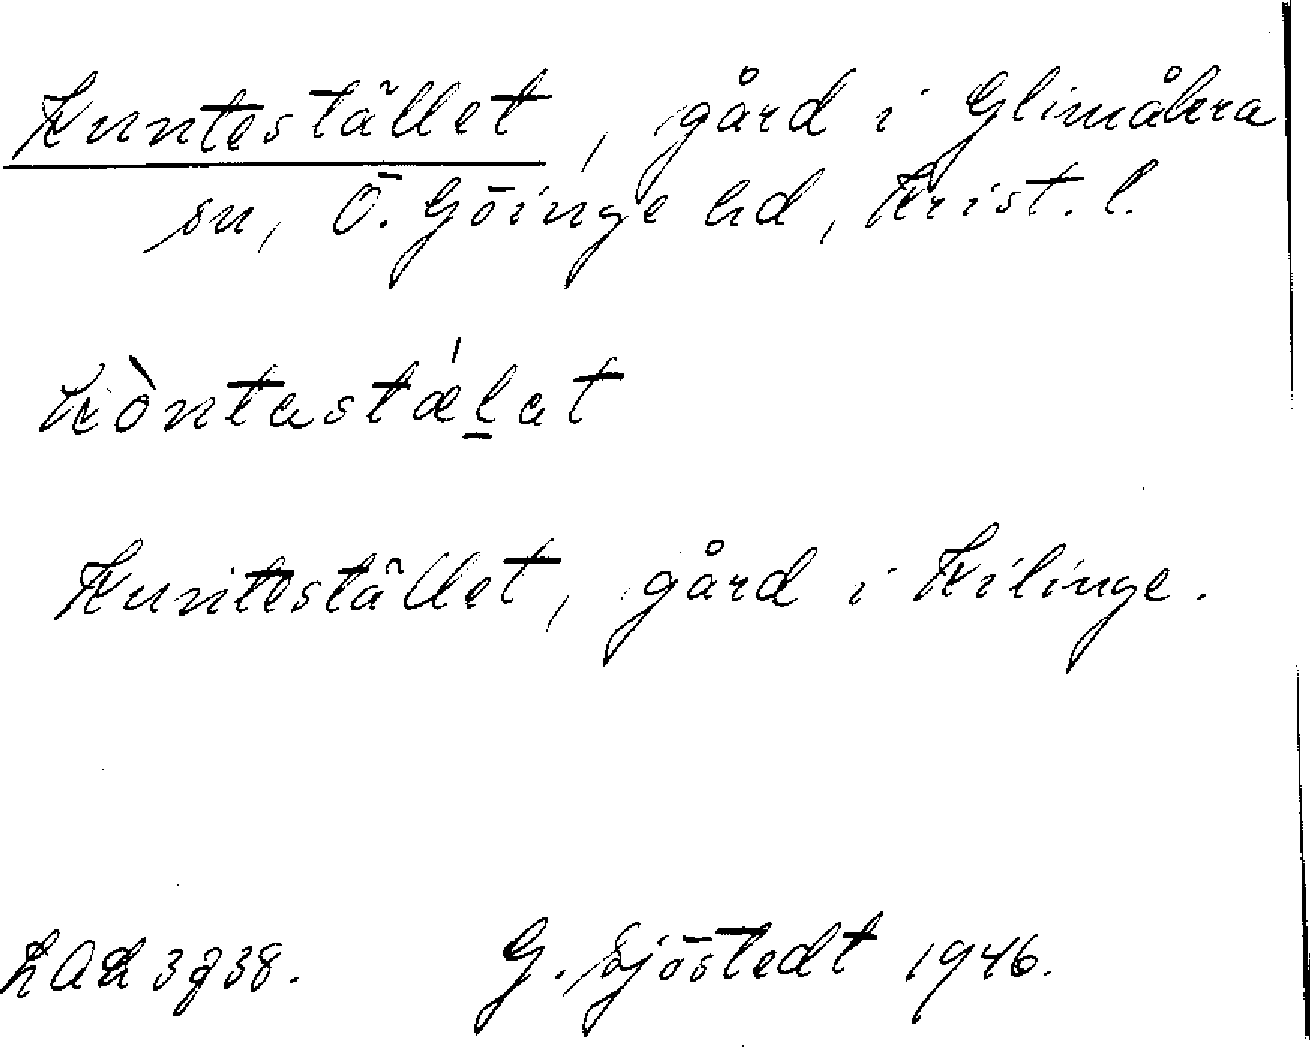 Kuntestället, gård i Glimåkra
sn, Ö. Göinge hd, Krist. l.
kòntastǽlat
Kuntestället, gård i Kilinge.
G. Sjöstedt 1946.